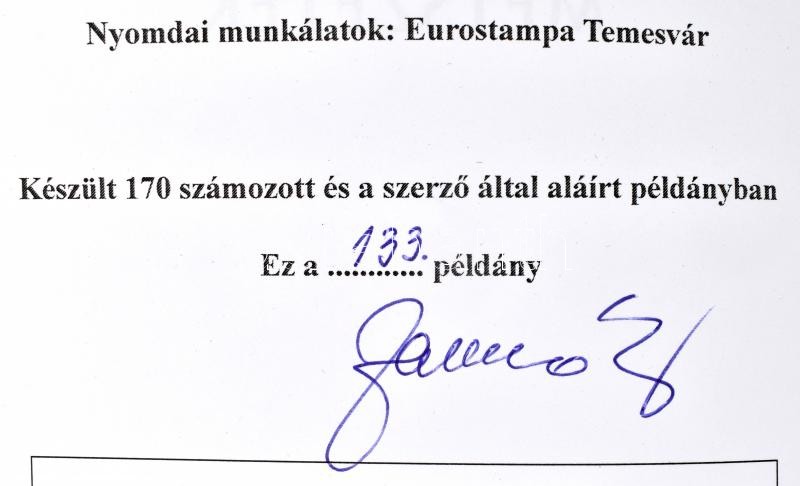 Nyomdai munkálatok: Eurostampa Temesvár
Készült 170 számozott és a szerző által aláírt példányban
Ez a ...133.... példány